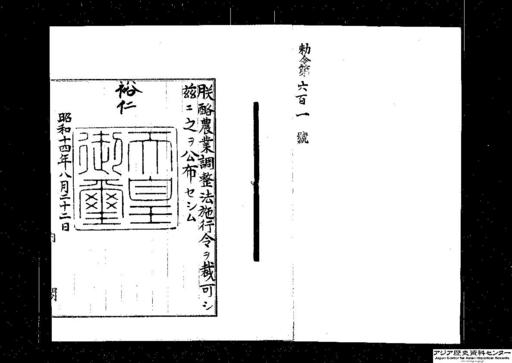 勅令第六百一號
朕酪農業調整法施行令ヲ裁可シ
茲ニ之ヲ公布セシム
裕仁
天皇
御璽
昭和十四年八月二十二日
アジア歴史資料センター
Japan Center for Asian Historical Records